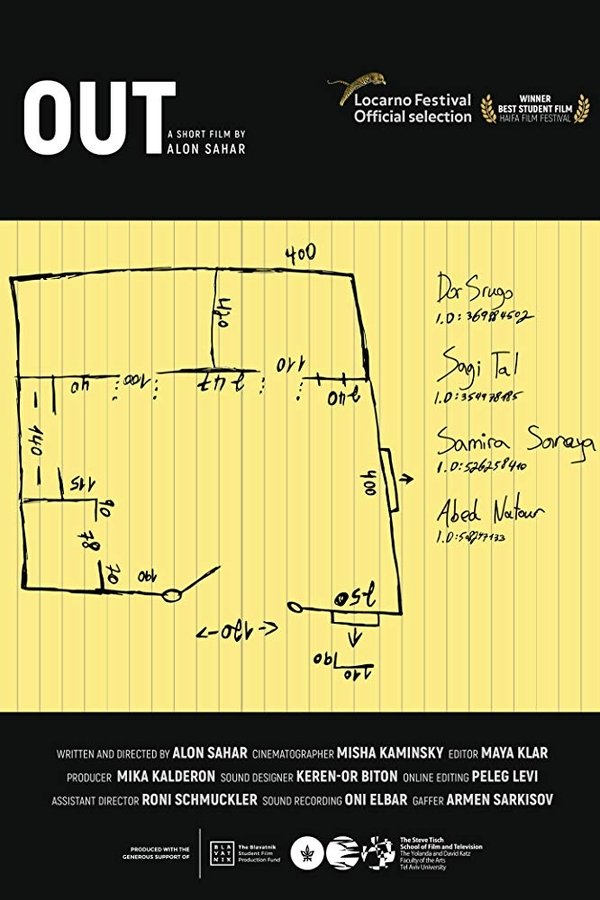 OUT
A SHORT FILM BY
ALON SAHAR
Locarno Festival
Official selection
WINNER
BEST STUDENT FILM
HAIFA FILM FESTIVAL
400
Dor Srugo
I.D:369884502
420
Sagi Tal
I.D:354978185
110
100
247
40
240
140
Samira Saraya
I.D:526258410
400
115
90
Abed Natour
78
70
190
250
<-120->
190
110
WRITTEN AND DIRECTED BY ALON SAHAR CINEMATOGRAPHER MISHA KAMINSKY EDITOR MAYA KLAR
PRODUCER MIKA KALDERON SOUND DESIGNER KEREN-OR BITON ONLINE EDITING PELEG LEVI
ASSISTANT DIRECTOR RONI SCHMUCKLER SOUND RECORDING ONI ELBAR GAFFER ARMEN SARKISOV
PRODUCED WITH THE
GENEROUS SUPPORT OF
BLA
VAT
NIK
The Blavatnik
Student Film
Production Fund
The Steve Tisch
School of Film and Television
The Yolanda and David Katz
Faculty of the Arts
Tel Aviv University